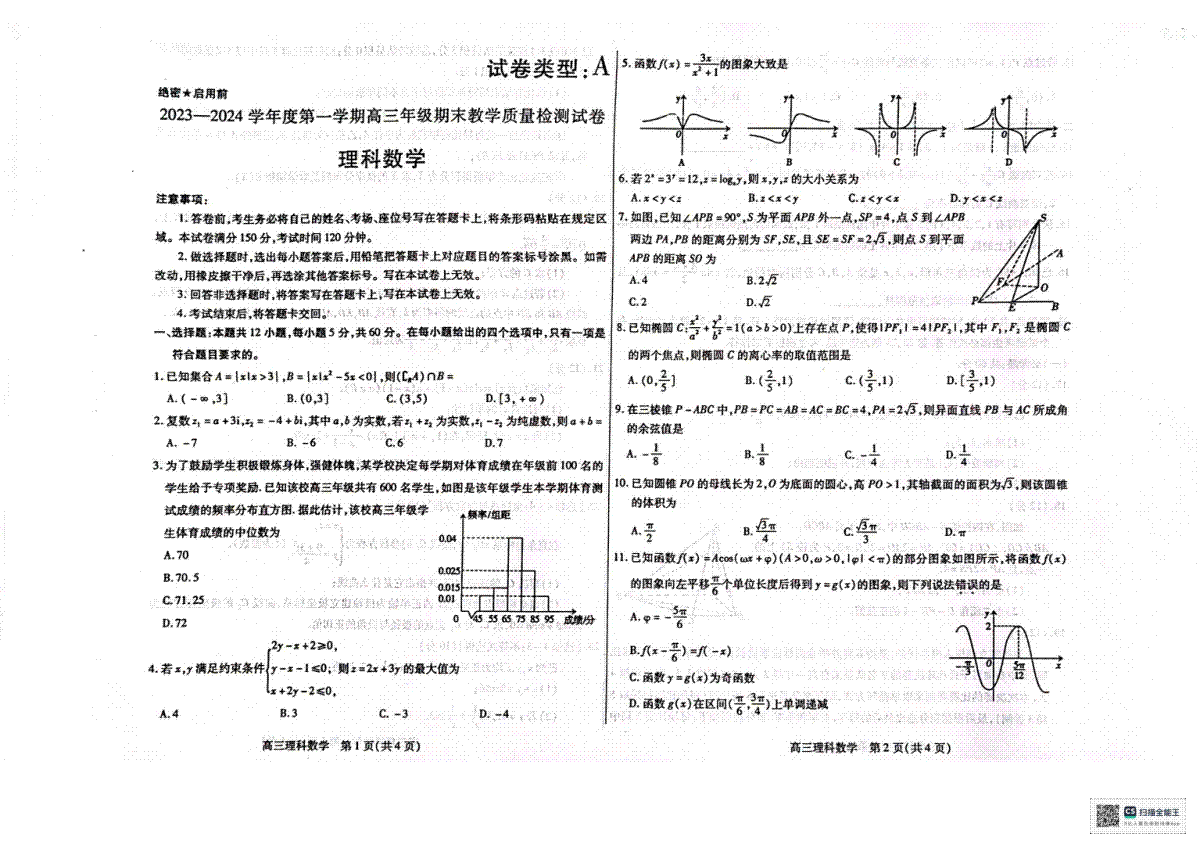 试卷类型：A
绝密★启用前
2023—2024 学年度第一学期高三年级期末教学质量检测试卷
理科数学
注意事项：
1. 答卷前，考生务必将自己的姓名、考场、座位号写在答题卡上，将条形码粘贴在规定区
域。本试卷满分 150 分，考试时间 120 分钟。
2. 做选择题时，选出每小题答案后，用铅笔把答题卡上对应题目的答案标号涂黑。如需
改动，用橡皮擦干净后，再选涂其他答案标号。写在本试卷上无效。
3. 回答非选择题时，将答案写在答题卡上，写在本试卷上无效。
4. 考试结束后，将答题卡交回。
一、选择题：本题共 12 小题，每小题 5 分，共 60 分。在每小题给出的四个选项中，只有一项是
符合题目要求的。
1. 已知集合 A = {x|x>3}，B = {x|x²-5x<0}，则(∁ᵣA)∩B =
A. (-∞,3] B. (0,3] C. (3,5) D. [3,+∞)
2. 复数 z₁ = a+3i, z₂ = -4+bi，其中 a,b 为实数，若 z₁+z₂ 为实数，z₁-z₂ 为纯虚数，则 a+b =
A. -7 B. -6 C. 6 D. 7
3. 为了鼓励学生积极锻炼身体，强健体魄，某学校决定每学期对体育成绩在年级前 100 名的
学生给于专项奖励. 已知该校高三年级共有 600 名学生，如图是该年级学生本学期体育测
试成绩的频率分布直方图. 据此估计，该校高三年级学
生体育成绩的中位数为
A. 70
B. 70.5
C. 71.25
D. 72
频率/组距
0.04
0.025
0.015
0.01
0 45 55 65 75 85 95 成绩/分
4. 若 x,y 满足约束条件{2y-x+2≥0, y-x-1≤0, x+2y-2≤0, 则 z=2x+3y 的最大值为
A. 4 B. 3 C. -3 D. -4
高三理科数学 第 1 页(共 4 页)
5. 函数 f(x) = 3x/(x²+1) 的图象大致是
y y y y
O x O x O x O x
A B C D
6. 若 2ˣ = 3ʸ = 12, z = logₓy，则 x,y,z 的大小关系为
A. x<y<z B. z<x<y C. z<y<x D. y<x<z
7. 如图，已知∠APB = 90°，S 为平面 APB 外一点，SP = 4，点 S 到∠APB
两边 PA,PB 的距离分别为 SF,SE，且 SE = SF = 2√3，则点 S 到平面
APB 的距离 SO 为
A. 4 B. 2√2
C. 2 D. √2
S
A
F
O
P E B
8. 已知椭圆 C: x²/a² + y²/b² = 1(a>b>0)上存在点 P，使得|PF₁| = 4|PF₂|，其中 F₁, F₂ 是椭圆 C
的两个焦点，则椭圆 C 的离心率的取值范围是
A. (0,2/5] B. (2/5,1) C. (3/5,1) D. [3/5,1)
9. 在三棱锥 P-ABC 中，PB = PC = AB = AC = BC = 4, PA = 2√3，则异面直线 PB 与 AC 所成角
的余弦值是
A. -1/8 B. 1/8 C. -1/4 D. 1/4
10. 已知圆锥 PO 的母线长为 2，O 为底面的圆心，高 PO>1，其轴截面的面积为√3，则该圆锥
的体积为
A. π/2 B. √3π/4 C. √3π/3 D. π
11. 已知函数 f(x) = Acos(ωx+φ)(A>0, ω>0, |φ|<π)的部分图象如图所示，将函数 f(x)
的图象向左平移 π/6 个单位长度后得到 y = g(x) 的图象，则下列说法错误的是
A. φ = -5π/6
B. f(x-π/6) = f(-x)
C. 函数 y = g(x) 为奇函数
D. 函数 g(x) 在区间(π/6, 3π/4)上单调递减
y
2
-π/3 O 5π/12 x
高三理科数学 第 2 页(共 4 页)
CS 扫描全能王